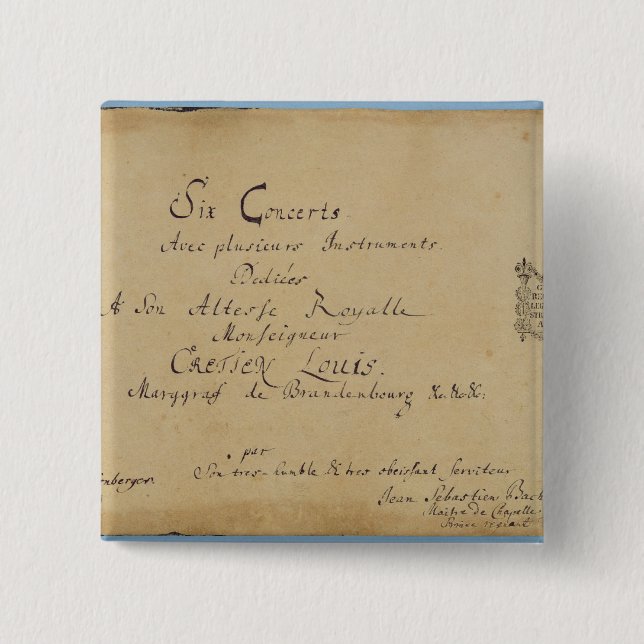 Six Concerts.
Avec plusieurs Instruments.
Dediées
A Son Altesse Royalle
Monseigneur
CRETIEN Louis.
Marggraf de Brandenbourg &c.&c.&c:
par
Son tres-humble & tres obeissant Serviteur
nberger.
Jean Sebastien Bach
Maitre de Chapelle
Prince regnant